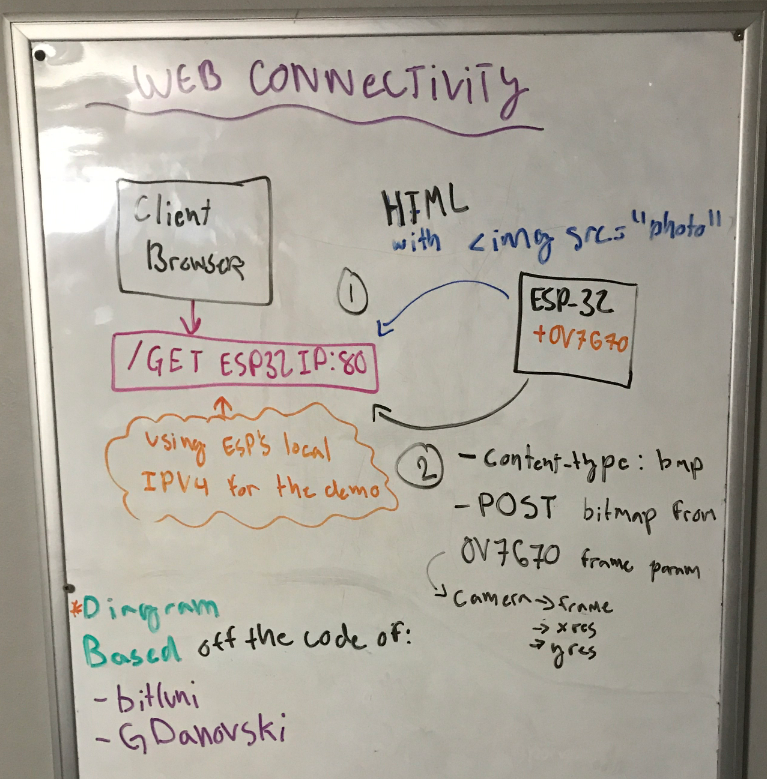 WEB CONNECTIVITY
Client
Browser
HTML
with <img src="photo"
1
ESP-32
+OV7670
/GET ESP32IP:80
using ESP's local
IPV4 for the demo
2
- Content-type: bmp
- POST bitmap from
OV7670 frame param
Camera→frame
→ xres
→ yres
*Diagram
Based off the code of:
- bitluni
- GDanovski